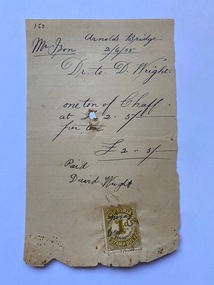 Arnolds Bridge
Mr Bon
Dr. to. D. Wright.
one ton of Chaff
at £2 . 5/-
per ton
£ 2 - 5/-
Paid
David Wright